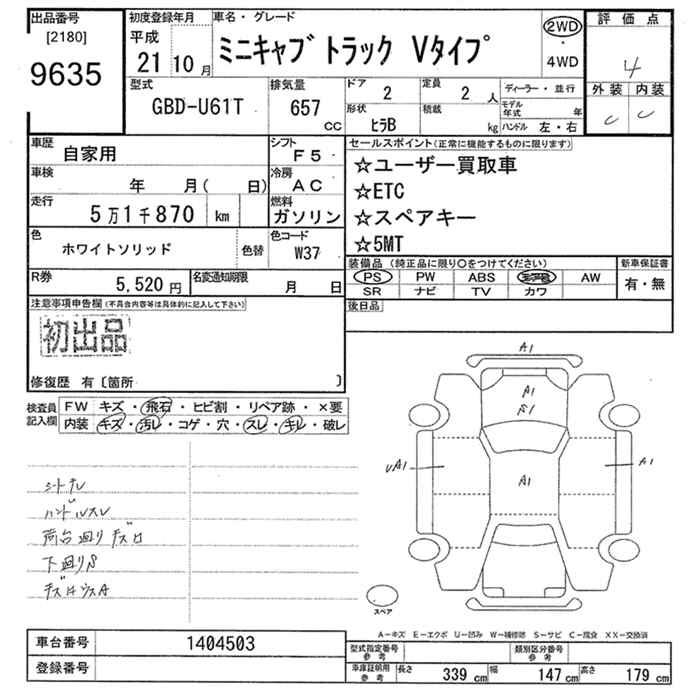 出品番号 初度登録年月 車名・グレード 評価点
[2180] 平成 2WD
9635 21 10月 ミニキャブ トラック Vタイプ ・ 4
4WD 外装 内装
型式 排気量 ドア 2 定員 2 人 ディーラー・並行 C C
GBD-U61T 657 cc 形状 ヒラB 積載 kg モデル年式 年
ハンドル 左・右
車歴 自家用 シフト F5 セールスポイント(正常に機能するものに限ります)
☆ユーザー買取車
車検 年 月( 日) 冷房 AC ☆ETC
走行 5万1千870 km 燃料 ガソリン ☆スペアキー
☆5MT
色 ホワイトソリッド 色替 色コード W37
装備品(純正品に限り〇をつけてください) 新車保証書
R券 5,520円 名変通知期限 月 日 PS PW ABS AW 有・無
SR ナビ TV カワ
注意事項申告欄(不具合内容等は具体的に記入して下さい) 後日品
初出品
修復歴 有〔箇所 〕
検査員記入欄 FW キズ・飛石・ヒビ割・リペア跡・×要
内装 キズ・汚レ・コゲ・穴・スレ・キレ・破レ
A1
A1
A1
UA1 A1 A1
ハンドルスレ
荷台廻り
下廻りS
スペア
A−キズ E−エクボ U−凹み W−補修跡 S−サビ C−腐食 XX−交換済
車台番号 1404503
型式指定番号 参考 類別区分番号 参考
登録番号
車庫証明用 参考 長さ 339 cm 幅 147 cm 高さ 179 cm